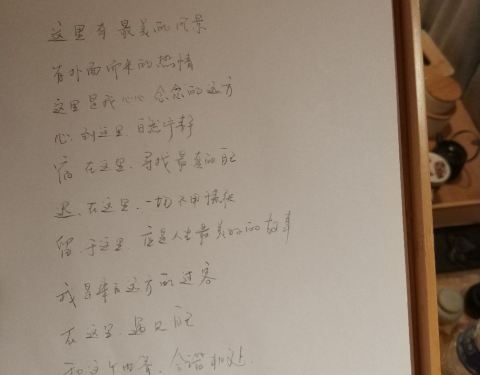 这里有最美的风景
首外而来的热情
这里是我心心念念的远方
心.到这里.自然宁静
宿.在这里.寻找最真的自己
迟.在这里.一切不用
留.于这里.应是人生最美好的故事
我是来自远方的过客
在这里.遇见自己
和这个世界.会谐相处.